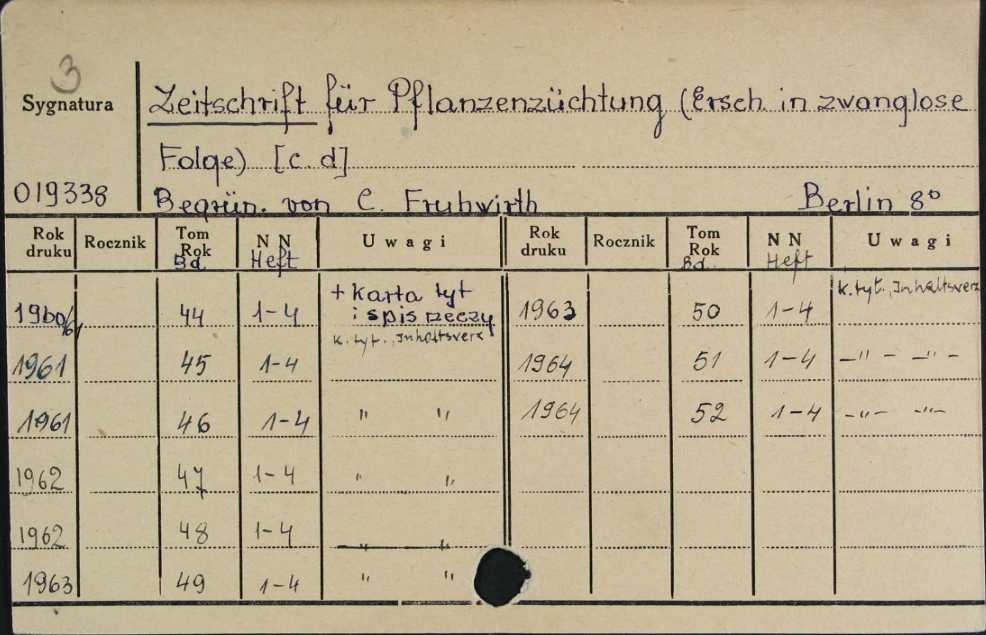 3
Sygnatura
Zeitschrift für Pflanzenzüchtung (Ersch. in zwanglose
Folge) [c. d]
019338
Begrün. von C. Fruhwirth Berlin 8°
Rok druku Rocznik Tom Rok Bd. N N Heft Uwagi Rok druku Rocznik Tom Rok Bd. N N Heft Uwagi
1960/61 44 1-4 + karta tyt i spis rzeczy 1963 50 1-4 k. tyt., Inhaltsverz
1961 45 1-4 k. tyt., Inhaltsverz 1964 51 1-4 -"- -"-
1961 46 1-4 " " 1964 52 1-4 -"- -"-
1962 47 1-4 " "
1962 48 1-4 " "
1963 49 1-4 " "